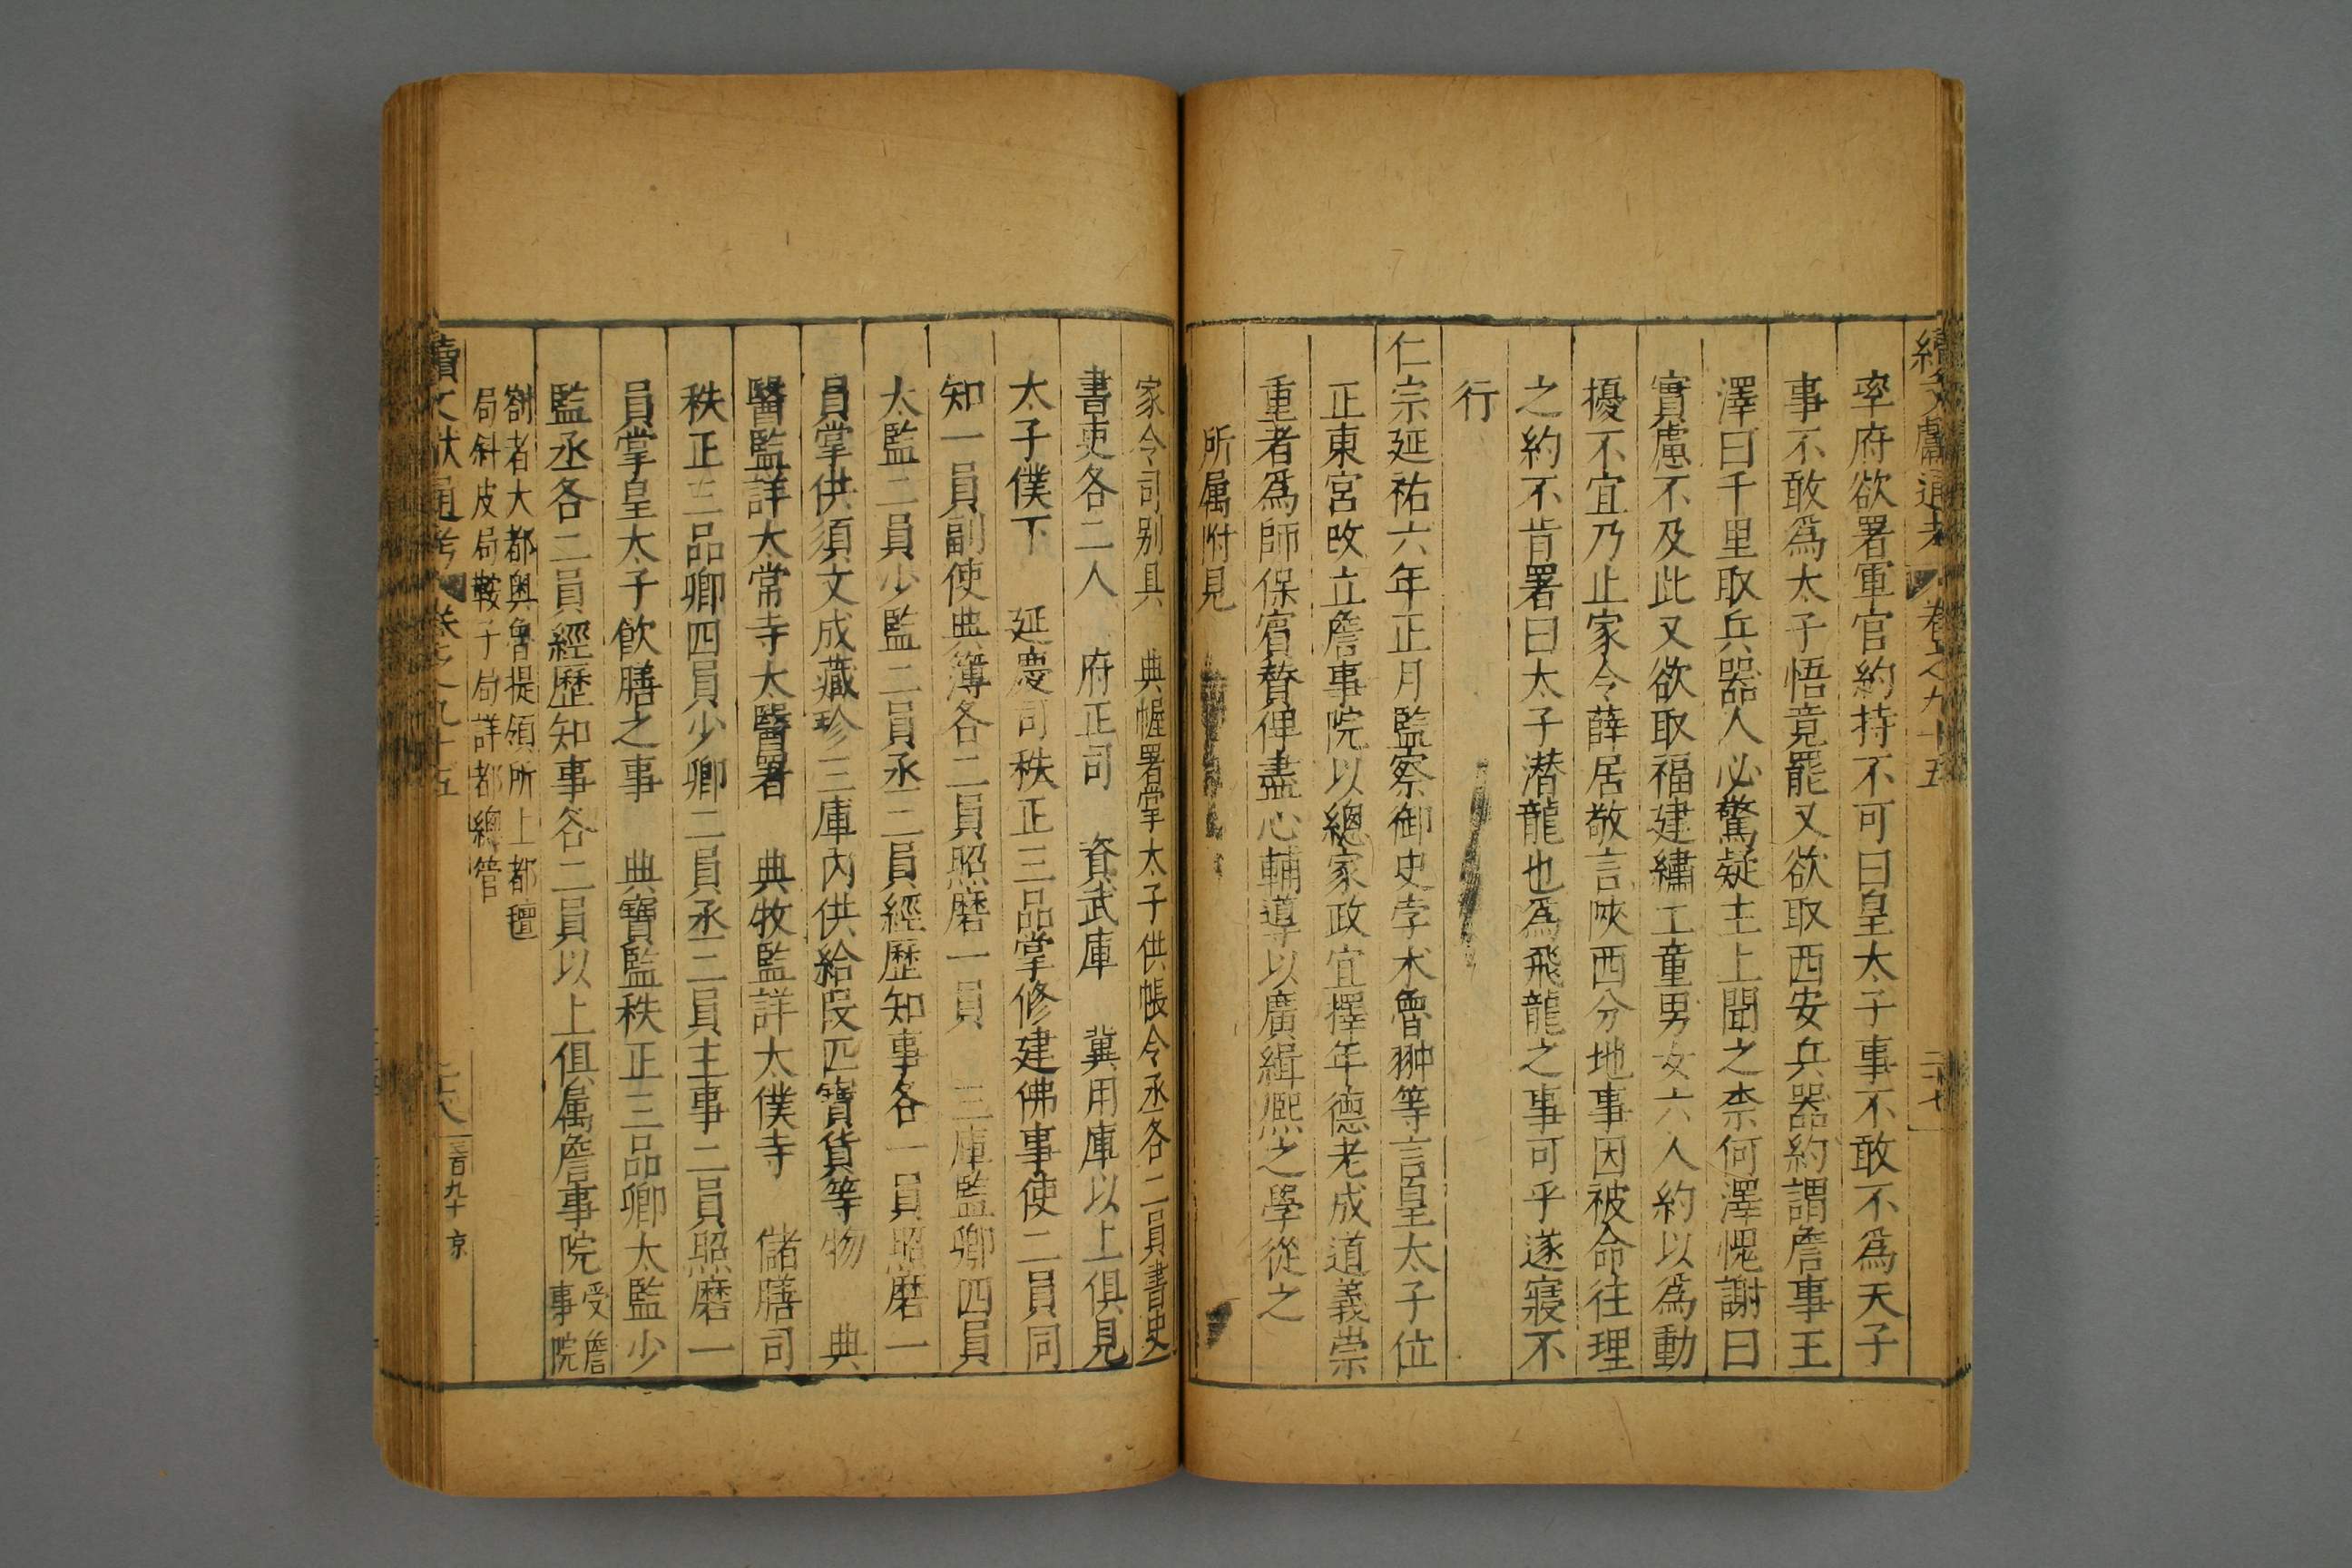 續文獻通考 卷之九十五 二十七
率府欲署軍官約持不可曰皇太子事不敢不爲天子
事不敢爲太子悟竟罷又欲取西安兵器約謂詹事王
澤曰千里取兵器人必驚疑主上聞之柰何澤愧謝曰
實慮不及此又欲取福建繡工童男女六人約以爲動
擾不宜乃止家令薛居敬言陜西分地事因被命往理
之約不肯署曰太子潜龍也爲飛龍之事可乎遂寢不
行
仁宗延祐六年正月監察御史孛术魯翀等言皇太子位
正東宮改立詹事院以總家政宜擇年德老成道義崇
重者爲師保賓賛俾盡心輔導以廣緝熙之學從之
所属附見
家令司别具 典幄署掌太子供帳令丞各二員書史
書吏各二人 府正司 資武庫 兾用庫以上俱見
太子僕下 延慶司秩正三品掌修建佛事使二員同
知一員副使典簿各二員照磨一員 三庫監卿四員
太監二員少監二員丞二員經歷知事各一員照磨一
員掌供須文成藏珍三庫内供給叚匹寶貨等物 典
醫監詳太常寺太醫署 典牧監詳太僕寺 儲膳司
秩正三品卿四員少卿二員丞二員主事二員照磨一
員掌皇太子飲膳之事 典寶監秩正三品卿太監少
監丞各二員經歷知事各二員以上俱属詹事院受詹
事院
劄者大都奥魯提領所上都氊
局斜皮局鞍子局詳都總管
續文獻通考 卷之九十五 二十八 三百九十 京